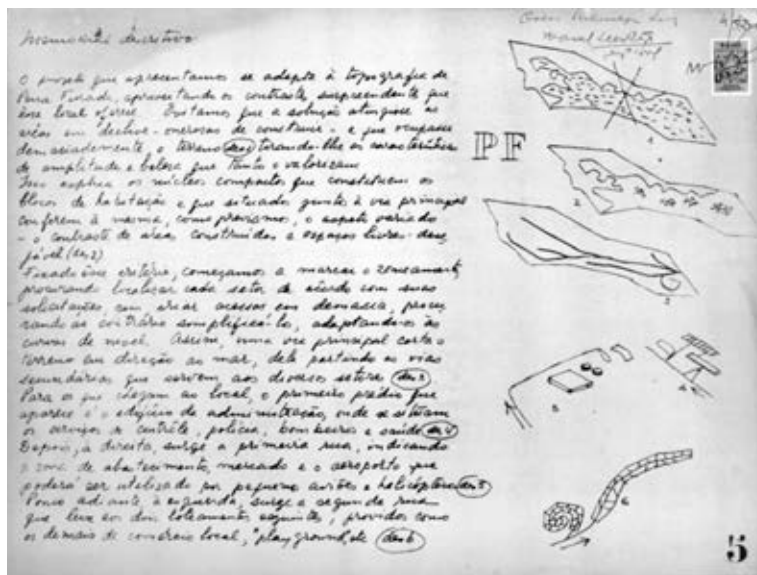 Memorial descritivo
O projeto que apresentamos se adapta à topografia de
Pena Furada, aproveitando os contrastes surpreendentes que
esse local oferece. Evitamos que a solução atingisse as
áreas em declive - onerosas de construir - e que ocupasse
demasiadamente o terreno tirando-lhe as características
de amplitude e beleza que tanto o valorizam.
Isso explica os núcleos compactos que constituem os
blocos de habitação e que situados junto à via principal
conferem à mesma, como previamos, o aspecto variado
- o contraste de áreas construidas e espaços livres - dese-
jável (des. 2)
Fixado êsse critério, começamos a marcar o zoneamento,
procurando localizar cada setor de acôrdo com suas
solicitações, sem criar acessos em demasia, procu-
rando ao contrário simplificá-lo, adaptando-os às
curvas de nivel. Assim, uma via principal corta o
terreno em direção ao mar, dela partindo as vias
secundárias que servem aos diversos setores (des 3)
Para os que chegam ao local, o primeiro prédio que
aparece é o edifício de administração, onde se situam
os serviços de contrôle, policia, bombeiros e saúde (des 4)
Depois, à direita, surge a primeira rua, indicando
a zona de abastecimento, mercado e o aeroporto que
poderá ser utilizado por pequenos aviões e helicópteros (des 5)
Pouco adiante, à esquerda, surge a segunda rua
que leva aos dois loteamentos seguintes, providos como
os demais de comércio local, "play ground", etc (des 6)
PF
1
2
3
4
5
6
5